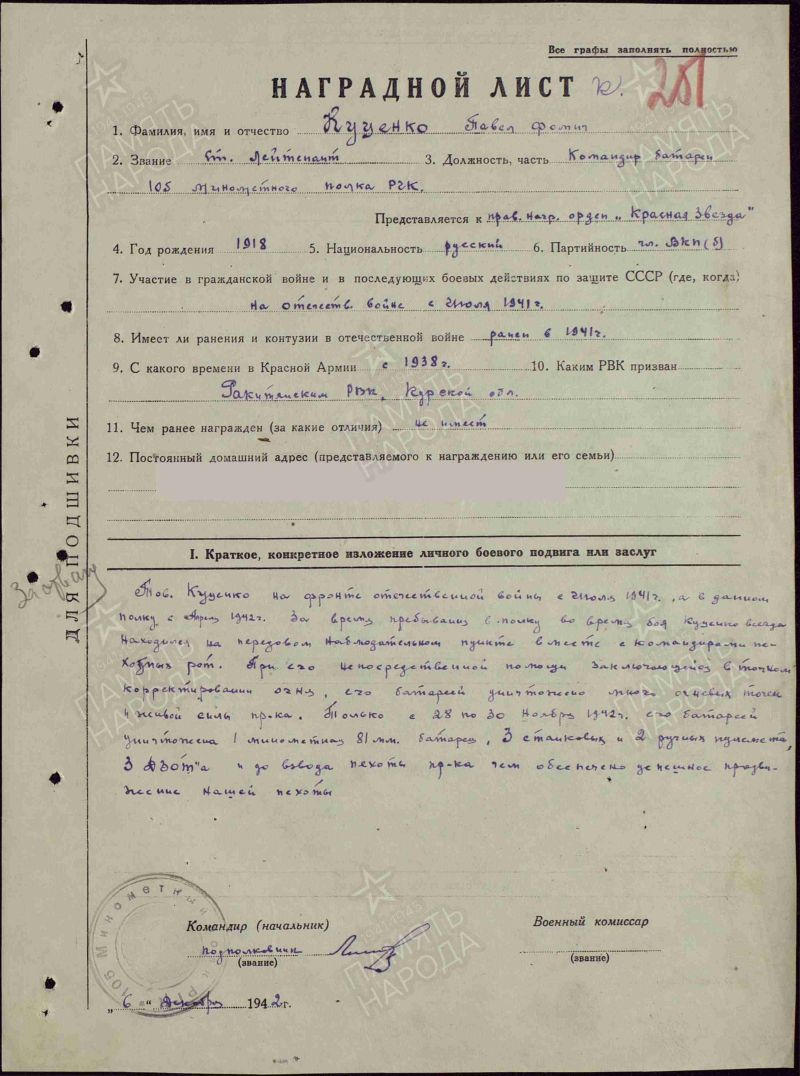 Все графы заполнять полностью
НАГРАДНОЙ ЛИСТ К. 251
1. Фамилия, имя и отчество Куценко Павел Фомич
2. Звание Ст. Лейтенант 3. Должность, часть Командир батареи
105 минометного полка РГК.
Представляется к прав. нагр. орден „Красная Звезда"
4. Год рождения 1918 5. Национальность русский 6. Партийность чл. ВКП(б)
7. Участие в гражданской войне и в последующих боевых действиях по защите СССР (где, когда)
на отечеств. войне с Июля 1941г.
8. Имеет ли ранения и контузии в отечественной войне ранен в 1941г.
9. С какого времени в Красной Армии с 1938г. 10. Каким РВК призван
Ракитянским РВК, Курской обл.
11. Чем ранее награжден (за какие отличия) не имеет
12. Постоянный домашний адрес (представляемого к награждению или его семьи)
ДЛЯ ПОДШИВКИ
I. Краткое, конкретное изложение личного боевого подвига или заслуг
Тов. Куценко на фронте отечественной войны с Июля 1941г., а в данном
полку с Апреля 1942г. За время пребывания в полку во время боя Куценко всегда
находился на передовом наблюдательном пункте вместе с командирами пе-
хотных рот. При его непосредственной помощи заключающейся в точном
корректировании огня, его батареей уничтожено много огневых точек
и живой силы пр-ка. Только с 28 по 30 Ноября 1942г. его батареей
уничтожена 1 минометная 81 мм. батарея, 3 станковых и 2 ручных пулемета,
3 ДЗОТ"а и до взвода пехоты пр-ка чем обеспечено успешное продви-
жение нашей пехоты
Командир (начальник) Военный комиссар
подполковник
(звание) (звание)
„6" Декабря 1942г.
105 Минометный
ПАМЯТЬ НАРОДА